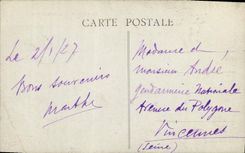 CARTE POSTALE
Le 2/1/27
Bons souvenirs
Marthe
Madame et
monsieur André
gendarmerie Nationale
Avenue du Polygone
Vincennes
(Seine)